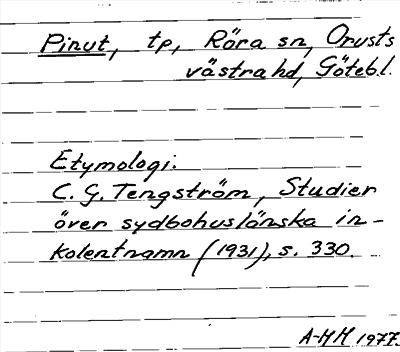 Pinut, tp, Röra sn, Orusts
västra hd, Götebl.
Etymologi:
C. G. Tengström, Studier
över sydbohuslänska in-
kolentnamn (1931), s. 330.
A-HH 1977.